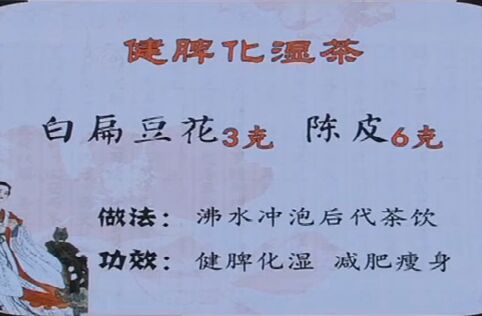 健脾化湿茶
白扁豆花3克 陈皮6克
做法：沸水冲泡后代茶饮
功效：健脾化湿 减肥瘦身